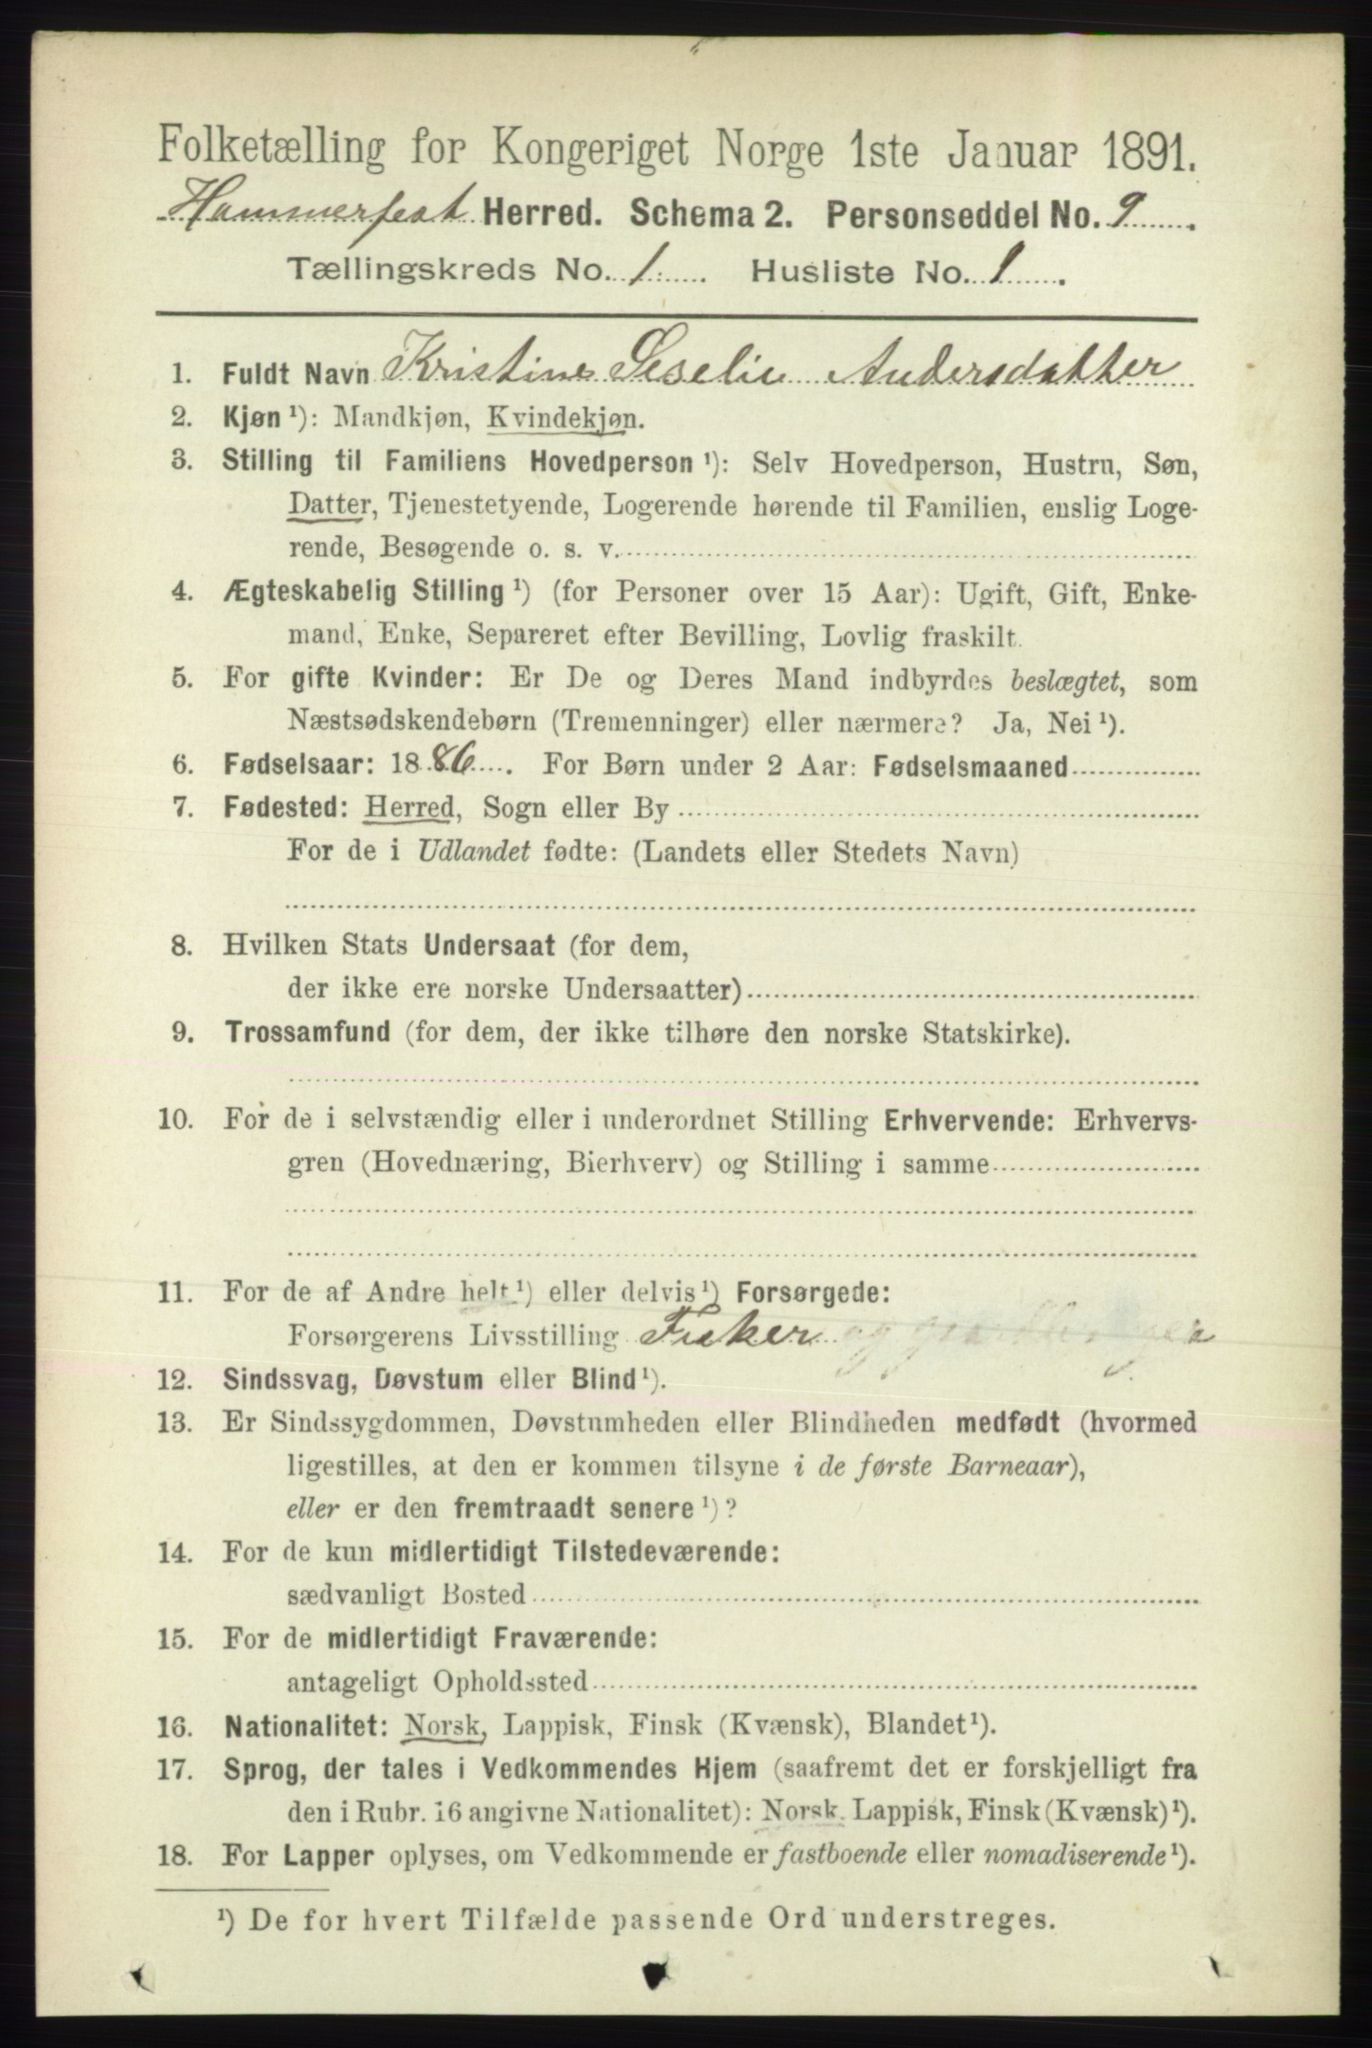 Folketælling for Kongeriget Norge 1ste Januar 1891.
Hammerfest Herred. Schema 2. Personseddel No. 9
Tællingskreds No. 1 Husliste No. 1
1. Fuldt Navn Kristine Seselie Andersdatter
2. Kjøn ¹): Mandkjøn, Kvindekjøn.
3. Stilling til Familiens Hovedperson ¹): Selv Hovedperson, Hustru, Søn,
Datter, Tjenestetyende, Logerende hørende til Familien, enslig Loge-
rende, Besøgende o. s. v.
4. Ægteskabelig Stilling ¹) (for Personer over 15 Aar): Ugift, Gift, Enke-
mand, Enke, Separeret efter Bevilling, Lovlig fraskilt.
5. For gifte Kvinder: Er De og Deres Mand indbyrdes beslægtet, som
Næstsødskendebørn (Tremenninger) eller nærmere? Ja, Nei ¹).
6. Fødselsaar: 1886. For Børn under 2 Aar: Fødselsmaaned
7. Fødested: Herred, Sogn eller By
For de i Udlandet fødte: (Landets eller Stedets Navn)
8. Hvilken Stats Undersaat (for dem,
der ikke ere norske Undersaatter)
9. Trossamfund (for dem, der ikke tilhøre den norske Statskirke).
10. For de i selvstændig eller i underordnet Stilling Erhvervende: Erhvervs-
gren (Hovednæring, Bierhverv) og Stilling i samme
11. For de af Andre helt ¹) eller delvis ¹) Forsørgede:
Forsørgerens Livsstilling Fisker og
12. Sindssvag, Døvstum eller Blind ¹).
13. Er Sindssygdommen, Døvstumheden eller Blindheden medfødt (hvormed
ligestilles, at den er kommen tilsyne i de første Barneaar),
eller er den fremtraadt senere ¹)?
14. For de kun midlertidigt Tilstedeværende:
sædvanligt Bosted
15. For de midlertidigt Fraværende:
antageligt Opholdssted
16. Nationalitet: Norsk, Lappisk, Finsk (Kvænsk), Blandet ¹).
17. Sprog, der tales i Vedkommendes Hjem (saafremt det er forskjelligt fra
den i Rubr. 16 angivne Nationalitet): Norsk, Lappisk, Finsk (Kvænsk) ¹).
18. For Lapper oplyses, om Vedkommende er fastboende eller nomadiserende ¹).
¹) De for hvert Tilfælde passende Ord understreges.